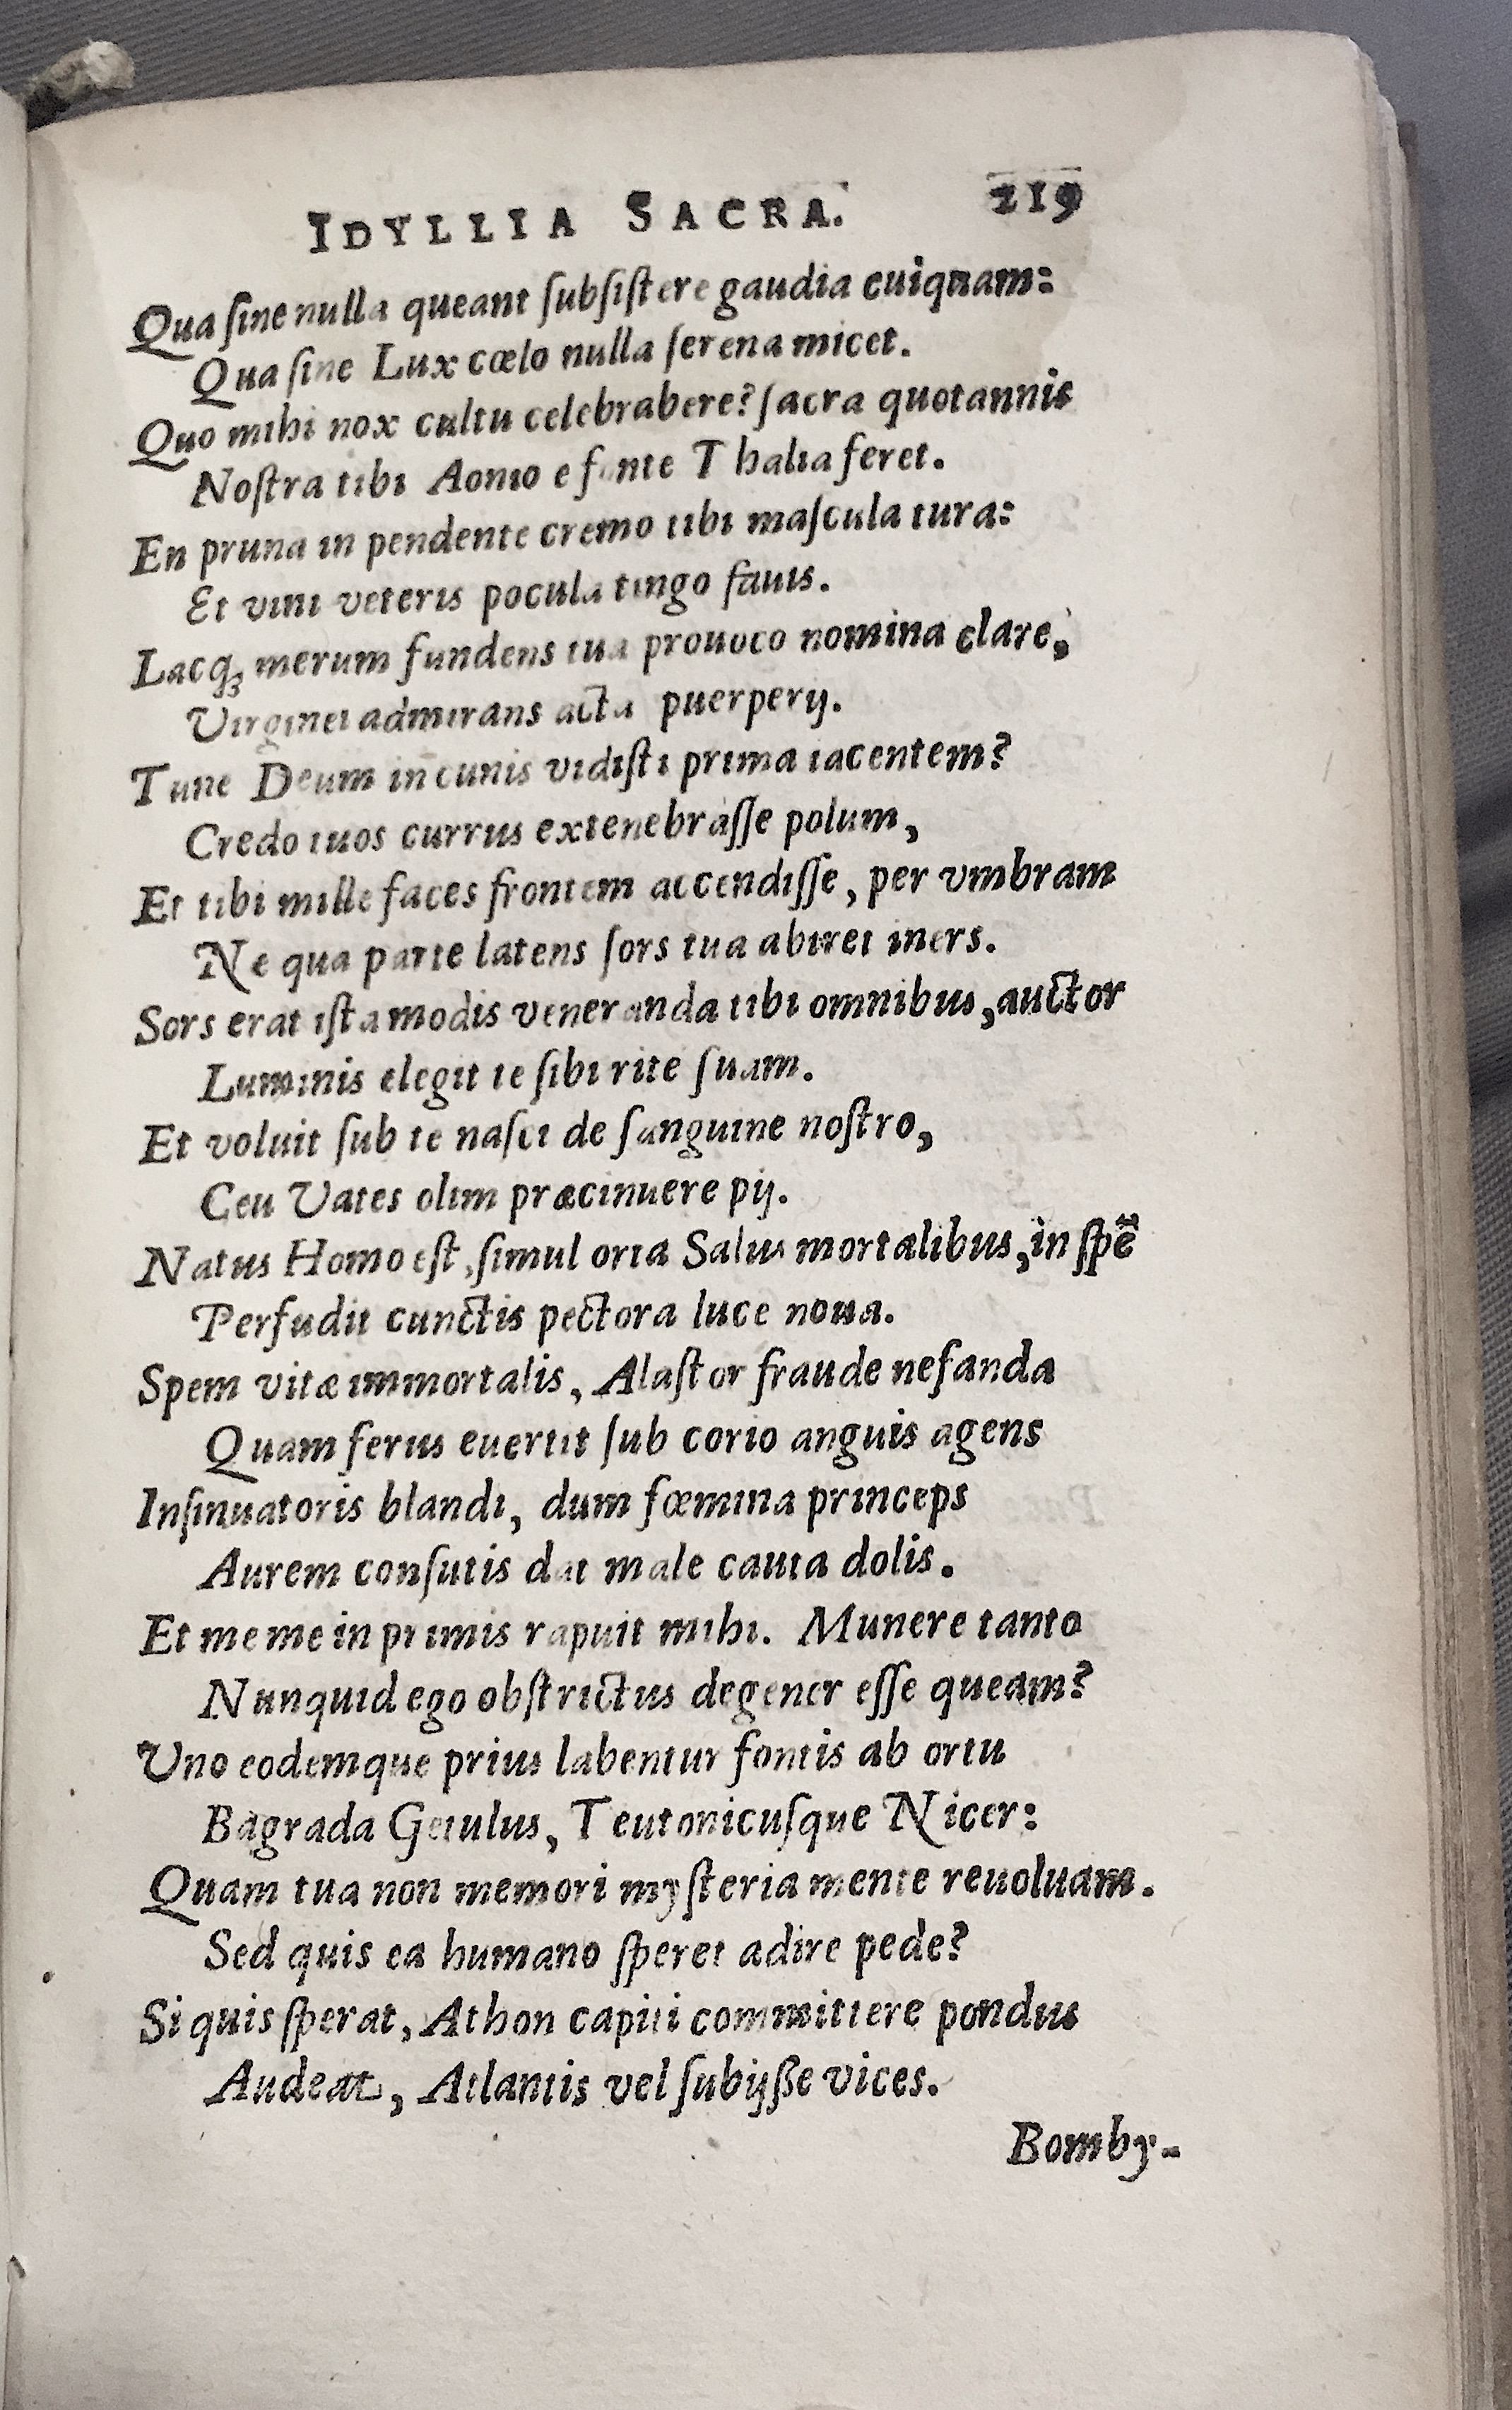 IDYLLIA SACRA. 219
Qua ſine nulla queant ſubſiſtere gaudia cuiquam:
Qua ſine Lux cœlo nulla ſerena micet.
Quo mihi nox cultu celebrabere? ſacra quotannis
Noſtra tibi Aonio e fonte Thalia feret.
En pruna in pendente cremo tibi maſcula tura:
Et vini veteris pocula tingo fauis.
Lacq́; merum fundens tua prouoco nomina clare,
Virginei admirans acta puerperij.
Tune Deum in cunis vidiſti prima iacentem?
Credo tuos currus extenebràſſe polum,
Et tibi mille faces frontem accendiſſe, per vmbram
Ne qua parte latens ſors tua abiret iners.
Sors erat iſta modis veneranda tibi omnibus, auctor
Luminis elegit te ſibi rite ſuam.
Et voluit ſub te naſci de ſanguine noſtro,
Ceu Vates olim præcinuere pij.
Natus Homo eſt, ſimul orta Salus mortalibus, in ſpē
Perfudit cunctis pectora luce noua.
Spem vitæ immortalis, Alaſtor fraude nefanda
Quam ferus euertit ſub corio anguis agens
Inſinuatoris blandi, dum fœmina princeps
Aurem conſutis dat male cauta dolis.
Et me me in primis rapuit mihi. Munere tanto
Nunquid ego obſtrictus degener eſſe queam?
Uno eodemque prius labentur fontis ab ortu
Bagrada Getulus, Teutonicuſque Nicer:
Quam tua non memori myſteria mente reuoluam.
Sed quis ea humano ſperet adire pede?
Si quis ſperat, Athon capiti committere pondus
Audeat, Atlantis vel ſubijße vices.
Bomby-